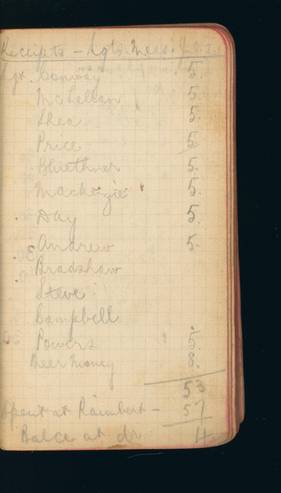 Receipts - Sgts. Mess.
Sgt. Conway 5.
McLellan 5.
Shea 5.
Price 5
5.
Mackenzie 5.
Day 5.
Andrew 5.
Bradshaw
Steve
Campbell
Powers 5.
Beer Money 8.
53
Spent at Raimbert - 57
Balce at dr. 4